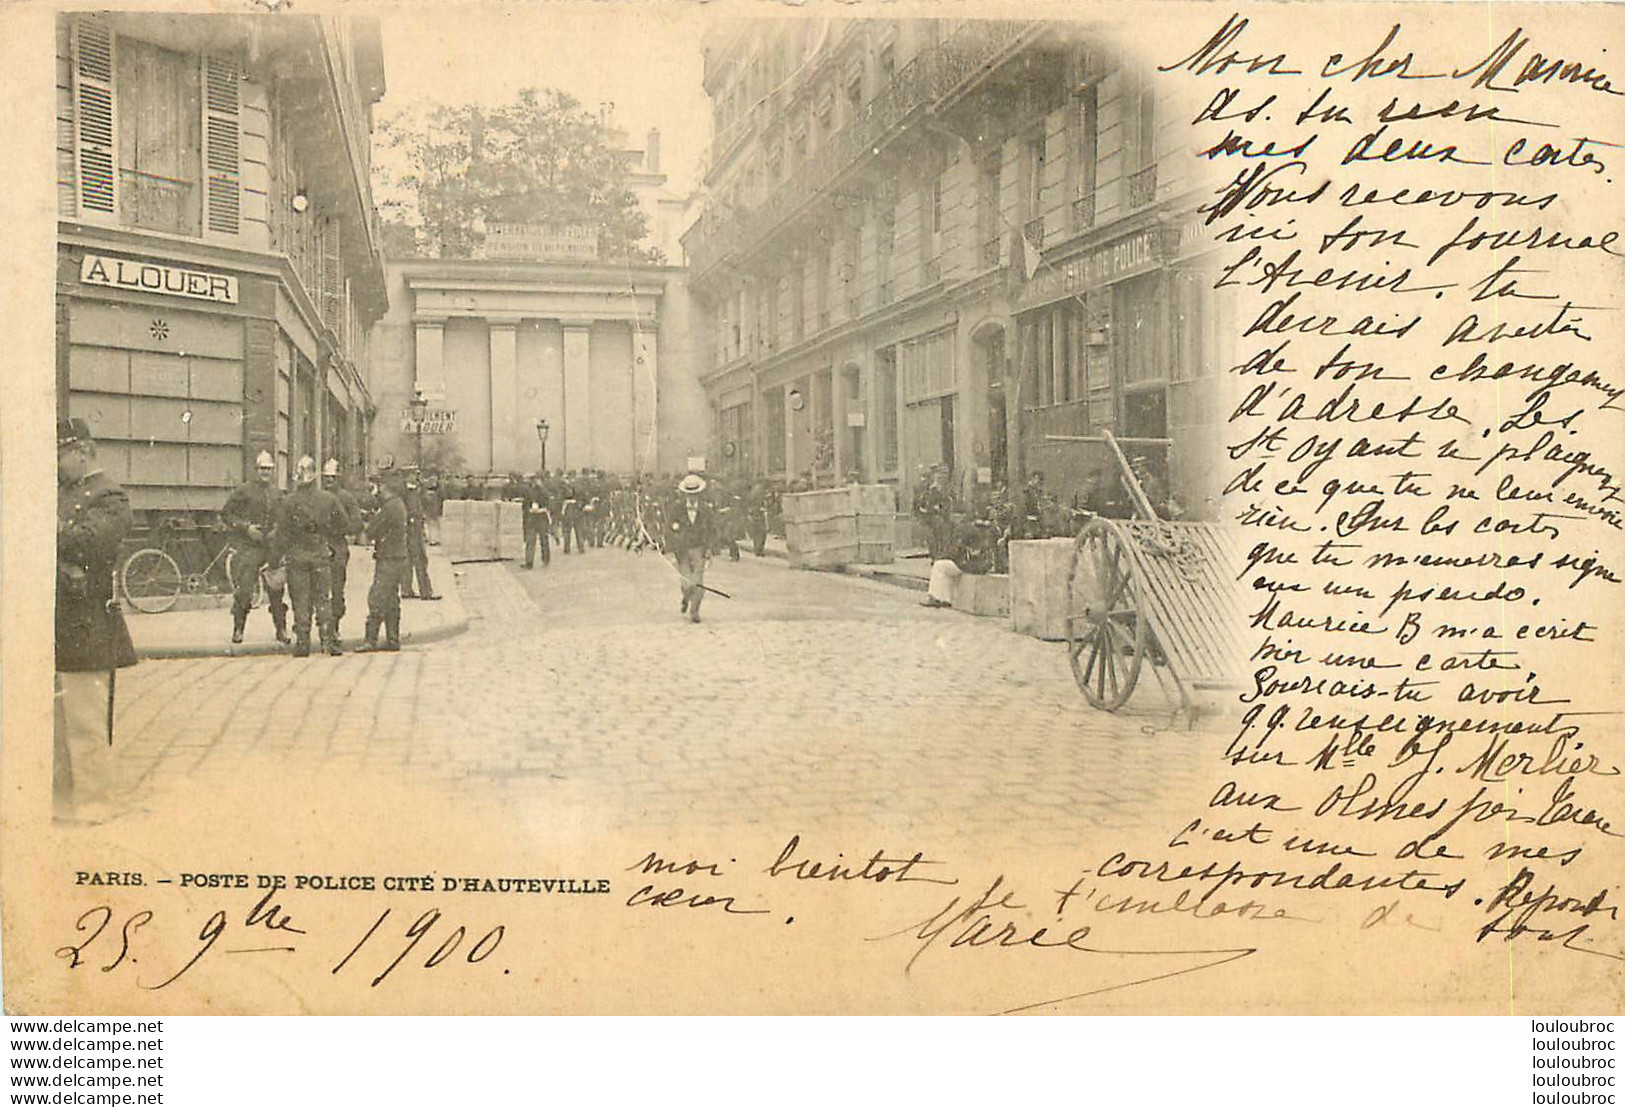 Mon cher Maurice
As. tu recu
mes deux cartes.
Nous recevons
ici ton journal
l'Avenir. tu
devrais avertir
de ton changement
d'adresse. Les
St Oyant se plaignent
de ce que tu ne leur envoie
rien. Sur les cartes
que tu m'enverras signe
sur un pseudo.
Maurice B m'a ecrit
hier une carte.
Pourrais-tu avoir
q.q. renseignements
sur Mlle J. Merlier
aux Olmes près Tarare
c'est une de mes
correspondantes. Réponds
moi bientot Je t'embrasse de tout
coeur.
Marie
A LOUER
PENSION
A LOUER
POSTE DE POLICE
PARIS. — POSTE DE POLICE CITÉ D'HAUTEVILLE
25. 9bre 1900.
www.delcampe.net
www.delcampe.net
www.delcampe.net
www.delcampe.net
www.delcampe.net
louloubroc
louloubroc
louloubroc
louloubroc
louloubroc